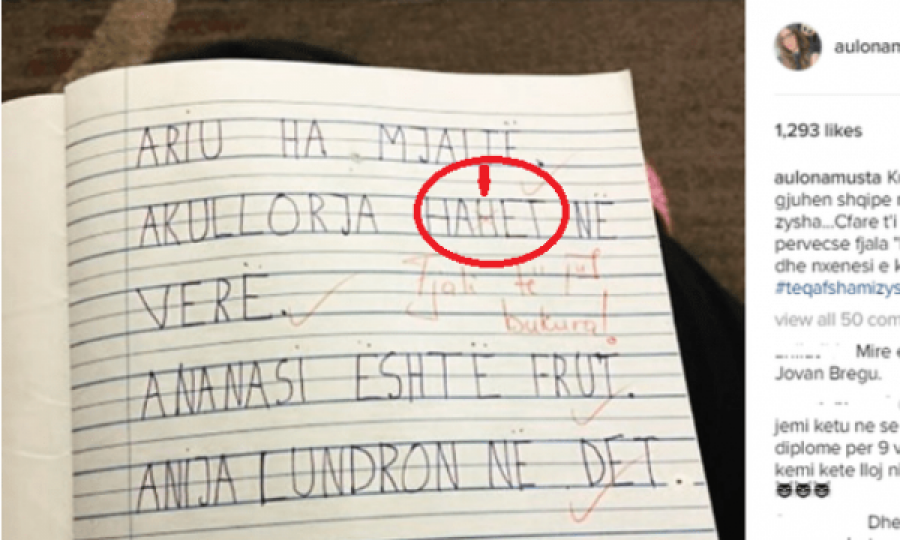 ARIU HA MJALTË.
AKULLORJA HAHET NË
VERË.
Fjali të
bukura!
ANANASI ËSHTË FRUT.
ANIJA LUNDRON NË DET.
aulonam
1,293 likes
aulonamusta
gjuhen shqipe
zysha...Cfare t'i
pervecse fjala
dhe nxenesi e
#teqafshamizys
view all 50 com
Mire e
Jovan Bregu.
jemi ketu ne se
diplome per 9 v
kemi kete lloj
Dhe